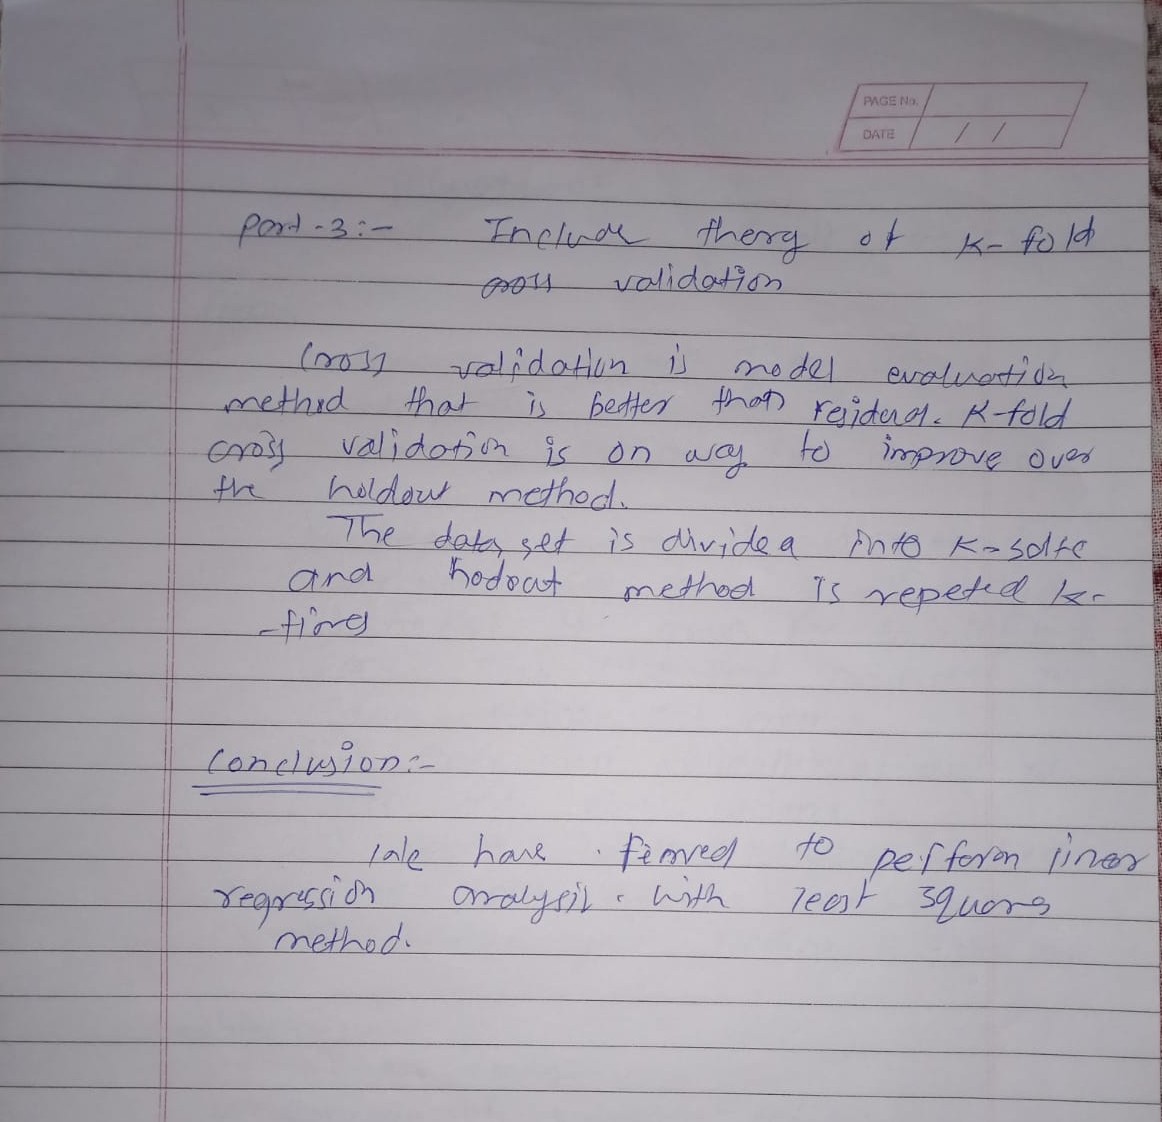 PAGE No.
DATE / /
Part-3:- Include theory of K-fold
cross validation
Cross validation is model evaluation
method that is better than residual. K-fold
cross validation is on way to improve over
the holdout method.
The data set is divided into K-
and hodout method is repeted k-
-times
Conclusion:-
We have to perform linear
regression analysis with least squares
method.